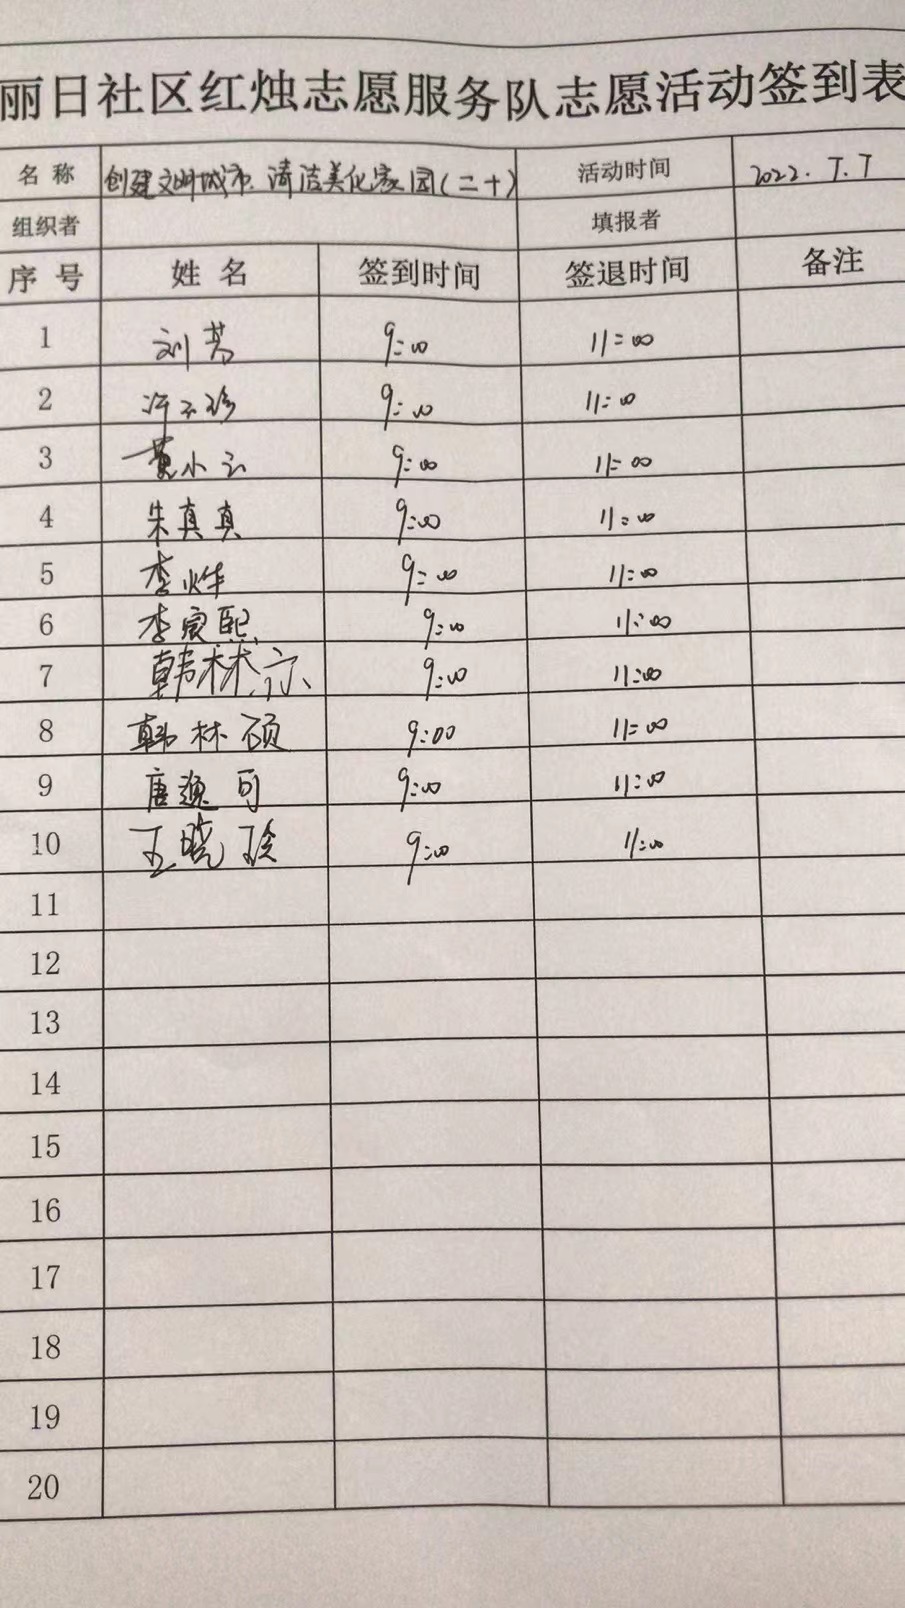 丽日社区红烛志愿服务队志愿活动签到表
名称 创建文明城市.清洁美化家园(二十) 活动时间 2022.7.7
组织者 填报者
序号 姓名 签到时间 签退时间 备注
1 刘芳 9:00 11:00
2 许玉珍 9:00 11:00
3 黄小云 9:00 11:00
4 朱真真 9:00 11:00
5 李烨 9:00 11:00
6 李宸熙 9:00 11:00
7 韩林 9:00 11:00
8 韩林硕 9:00 11:00
9 唐逸可 9:00 11:00
10 王晓玲 9:00 11:00
11
12
13
14
15
16
17
18
19
20